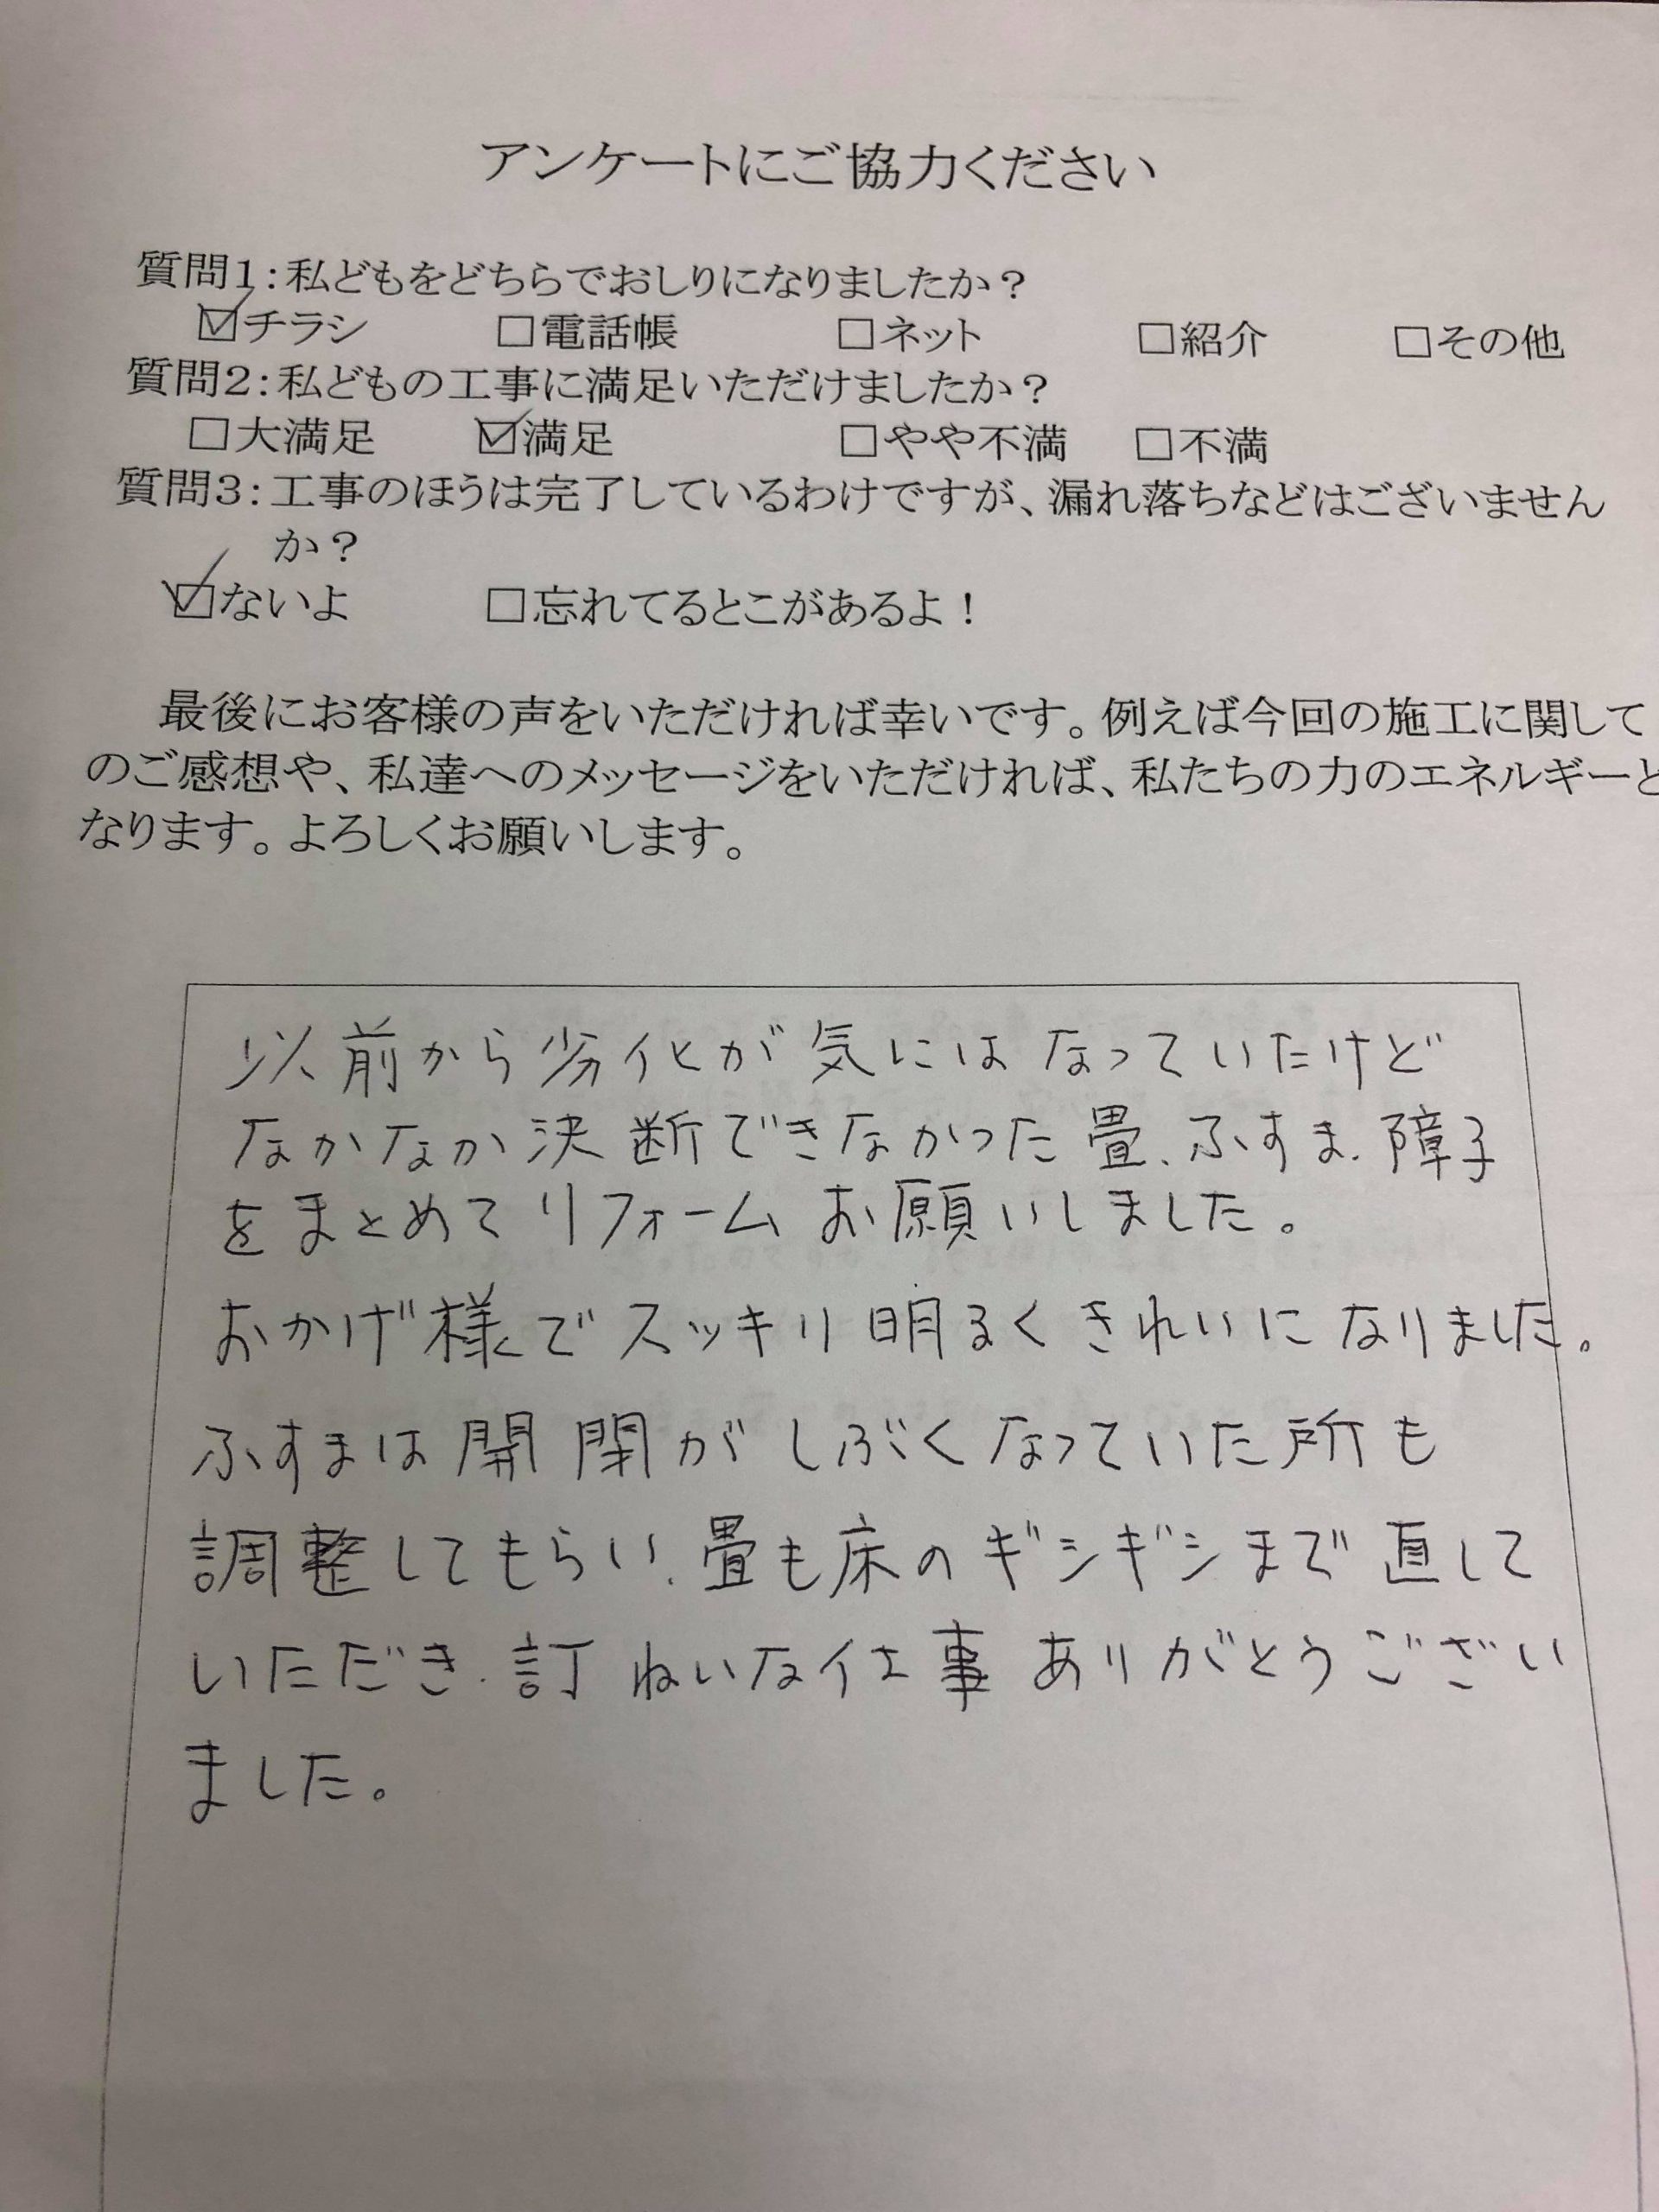 アンケートにご協力ください
質問1:私どもをどちらでおしりになりましたか?
☑チラシ □電話帳 □ネット □紹介 □その他
質問2:私どもの工事に満足いただけましたか?
□大満足 ☑満足 □やや不満 □不満
質問3:工事のほうは完了しているわけですが、漏れ落ちなどはございません
か?
☑ないよ □忘れてるとこがあるよ!
最後にお客様の声をいただければ幸いです。例えば今回の施工に関して
のご感想や、私達へのメッセージをいただければ、私たちの力のエネルギーと
なります。よろしくお願いします。
以前から劣化が気にはなっていたけど
なかなか決断できなかった畳、ふすま、障子
をまとめてリフォームお願いしました。
おかげ様でスッキリ明るくきれいになりました。
ふすまは開閉がしぶくなっていた所も
調整してもらい、畳も床のギシギシまで直して
いただき、訂ねいな仕事ありがとうござい
ました。